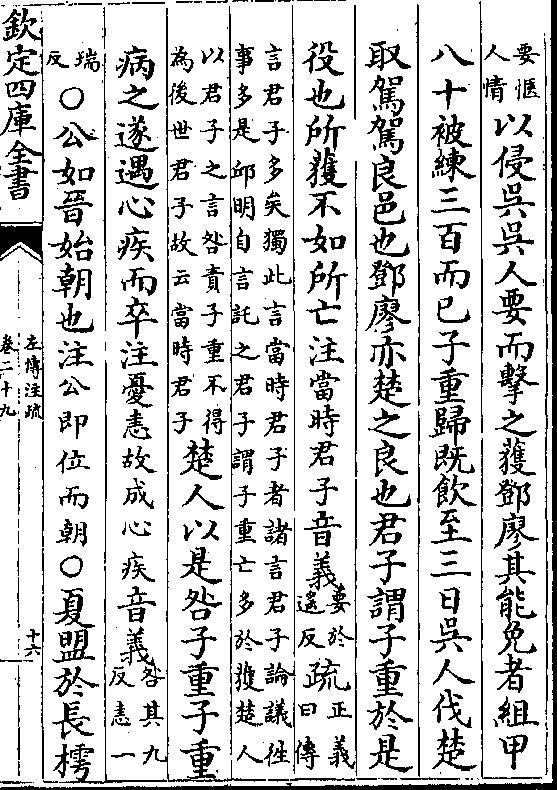 要愜
人情
以侵吳吳人要而擊之獲鄧廖其能免者組甲
八十被練三百而已子重歸既飲至三日吳人伐楚
取駕駕良邑也鄧廖亦楚之良也君子謂子重於是
役也所獲不如所亡注當時君子音義
要於
遙反
疏
正義
曰傳
言君子多矣獨此言當時君子者諸言君子論議往
事多是邱明自言託之君子謂子重亡多於獲楚人
以君子之言咎責子重不得
為後世君子故云當時君子
楚人以是咎子重子重
病之遂遇心疾而卒注憂恚故成心疾音義
咎其九
反恚一
瑞
反
○公如晉始朝也注公即位而朝○夏盟於長樗
欽定四庫全書
左傳注疏
卷二十九
十六